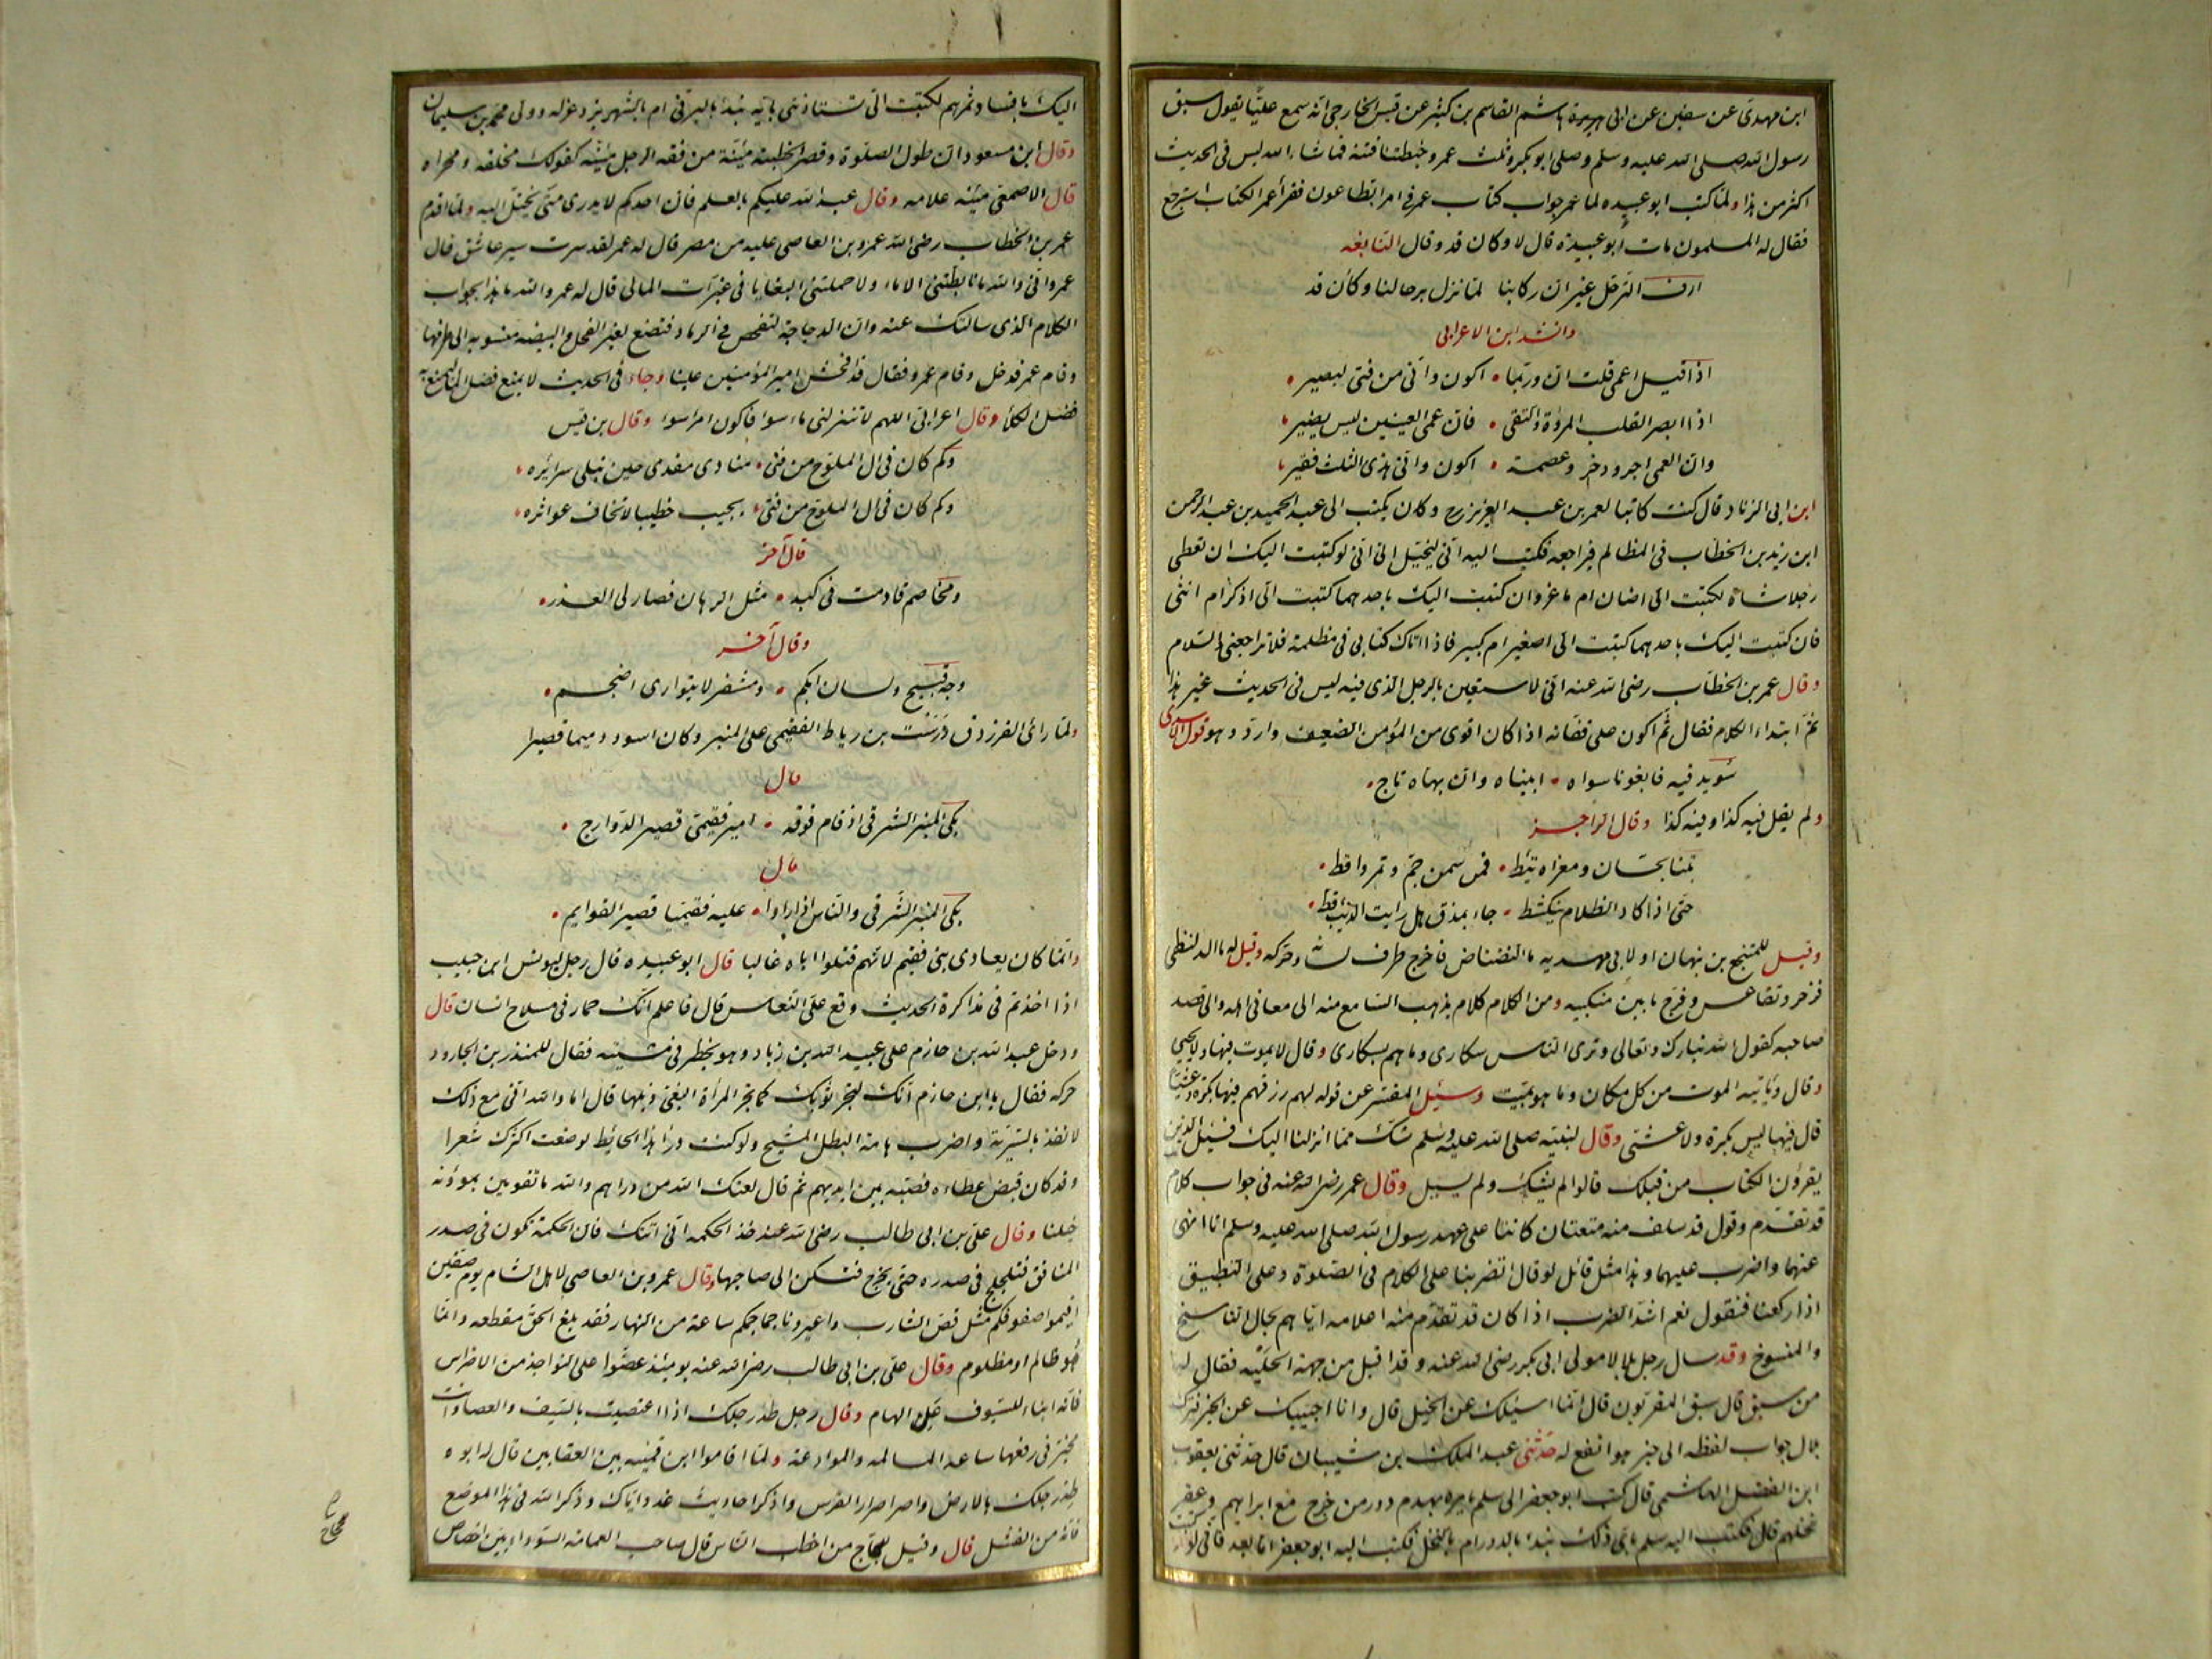 ابن مهدی عن سفین عن ابی هریرة هاشم القاسم بن کثیر عن قیس الخارجی انه سمع علیّا یقول سبق
رسول الله صلی الله علیه وسلم وصلی ابو بکر وثلث عمر وخبطتنا فتنة فما شاء الله لیس فی الحدیث
اکثر من هذا ولما کتب ابو عبیده لما عمر جواب کتاب عمر فی امر الطاعون فقرأ عمر الکتاب استرجع
فقال له المسلمون مات أبو عبیدة قال لا وکان قد وقال النابغه
ازف الترحّل غیر ان رکابنا لما تزل برحالنا وکأن قد
وانشد ابن الاعرابی
اذا قیل اعمی قلت ان وربّما اکون وانّی من فتی لبصیر
اذا ابصر القلب المروة والتقی فان عمی العینین لیس یضیر
وان العمی اجر وذخر وعصمة اکون وانی هذی الثلث فقیر
ابن ابی الزناد قال کنت کاتبا لعمر بن عبد العزیز رح وکان یکتب الی عبد الحمید بن عبد الرحمن
ابن زید بن الخطاب فی المظالم فیراجعه فکتب الیه انّی لیخیّل الیّ انّی لو کتبت الیک ان تعطی
رجلا شاة لکتبت الیّ اضان ام ماعز وان کتبت الیک باحدهما کتبت الیّ اذکر ام انثی
فان کتبت الیک باحدهما کتبت الیّ اصغیر ام کبیر فاذا اتاک کتابی فی مظلمة فلا تراجعنی والسلام
وقال عمر بن الخطاب رضی الله عنه انّی لاستعین بالرجل الذی فیه لیس فی الحدیث غیر هذا
ثمّ ابتداء الکلام فقال ثم اکون علی قفّانه اذا کان اقوی من المؤمن الضعیف وارد وهو قول الاسدی
سوید فیه فابغونا سواه ابیناه وان بهاه تاج
ولم یقل فیه کذا وفیه کذا وقال الراجز
بتنا بحسّان ومعزاه تئطّ فی سمن جمّ وتمر واقط
حتی اذا کاد الظلام ینکشط جاء بمذق هل رایت الذئب قط
وقیل للمنتجع بن نبهان او لابی مهدیه ما النضناض فاخرج طرف لسانه وحرکه وقیل له ما الدلنظی
فزحر وتقاعس وفرّج ما بین منکبیه ومن الکلام کلام یذهب السامع منه الی معانی اهله والی قصد
صاحبه کقول الله تبارک وتعالی وتری الناس سکاری وما هم بسکاری وقال لا یموت فیها ولا یحیی
وقال ویاتیه الموت من کل مکان وما هو بمیّت وسئل المفسّر عن قوله لهم رزقهم فیها بکرة وعشیّا
قال فیها لیس بکرة ولا عشی وقال لنبیّه صلی الله علیه وسلم شک مما انزلنا الیک فسئل الذین
یقرؤن الکتاب من قبلک قالوا لم یشکّ ولم یسل وقال عمر رضی الله عنه فی جواب کلام
قد تقدّم وقول قد سلف منه متعتان کانتا علی عهد رسول الله صلی الله علیه وسلم انا انهی
عنهما واضرب علیهما وهذا مثل قائل لو قال اتضربنا علی الکلام فی الصلوة وعلی التطبیق
اذا رکعنا فنقول نعم اشدّ الضرب اذا کان قد تقدّم منه اعلامه ایّاهم بحال الناسخ
والمنسوخ وقد سال رجل بلالا مولی ابی بکر رضی الله عنه وقد اقبل من جهة الحلبة فقال له
من سبق قال سبق المقربون قال انّما اسئلک عن الخیل قال وانا اجیبک عن الخیر فترک
بلال جواب لفظه الی خبر هو انفع له حدّثنی عبد الملک بن شیبان قال حدّثنی یعقوب
ابن الفضل الهاشمی قال کتب ابو جعفر الی سلم یامره بهدم دور من خرج مع ابراهیم وعقر
نخلهم قال فکتب الیه سلم بایّ ذلک نبدا بالدور ام بالنخل فکتب الیه ابو جعفر اما بعد فانی لو
الیک بافساد ثمرهم لکتبت الیّ تستاذننی بایّه نبدأ بالبرنی ام بالشهریز وعزله وولی محمد بن سلیمان
وقال ابن مسعود ان طول الصلوة وقصر الخطبة مئنة من فقه الرجل مئنّه کقولک مخلقه ومجراه
قال الاصمعی مئنّه علامه وقال عبد الله علیکم بالعلم فان احدکم لا یدری متی یختلّ الیه ولما اقدم
عمر بن الخطاب رضی الله عمرو بن العاصی علیه من مصر قال له عمر لقد سرت سیر عاشق قال
عمرو انّی والله ما تابطتنی الاماء ولا حملتنی البغایا فی غبّرات المالی قال له عمر والله ما هذا بجواب
الکلام الذی سالتک عنه وان الدجاجة لتفحص فی الرماد فتضع لغیر الفحل والبیضه منسوبه الی طرفها
وقام عمر فدخل وقام عمرو فقال قد فحش امیر المؤمنین علینا وجاء فی الحدیث لا یمنع فضل الماء لیمنع به
فضل الکلأ وقال اعرابی اللهم لا تنزلنی ماء سوء فاکون امرا سوا وقال بن قیس
وکم کان فی ال الملوّح من فتی منادی مفدی حین تبلی سرائره
وکم کان فی ال الملوّح من فتی یجیب خطیبا لا تخاف عواثره
قال آخر
ومخاصم قاومت فی کبد مثل الرهان فصار لی العذر
وقال آخر
وجه قبیح ولسان ابکم ومشفر لا یتواری اضجم
ولمّا رای الفرزدق درست بن رباط الفقیمی علی المنبر وکان اسود دمیما قصیرا
قال
بکی المنبر الشرقی اذ قام فوقه امیر فقیمیّ قصیر الدوارج
قال
بکی المنبر الشرقی والناس اذ راوا علیه فقیمیّا قصیر القوایم
وانّما کان یعادی بنی فقیم لانهم قتلوا اباه غالبا قال ابو عبیده قال رجل لیونس ابن حبیب
اذا اخذتم فی مذاکرة الحدیث وقع علیّ النعاس قال فاعلم انّک حمار فی مسلاح انسان قال
ودخل عبد الله بن حازم علی عبید الله بن زیاد وهو یخطر فی مشیته فقال للمنذر بن الجارود
حرکه فقال یا ابن حازم انّک لتجرّ ثوبک کما تجرّ المرأة البغیّ ذیلها قال اما والله انّی مع ذلک
لانفذ بالسّریّة واضرب هامة البطل المشیح ولو کنت وراء هذا الحائط لوضعت اکثرک شعرا
وقد کان قبض عطاءه فصبّه بین ایدیهم ثم قال لعنک الله من دراهم والله ما تقومین بموؤنة
خیلنا وقال علیّ بن ابی طالب رضی الله عنه خذ الحکمه انّی اتتک فان الحکمة تکون فی صدر
المنافق فتلجلج فی صدره حتی یخرج فتسکن الی صاحبها وقال عمرو بن العاصی لاهل الشام یوم صفین
اقیموا صفوفکم مثل قصّ الشارب واعیرونا جماجمکم ساعة من النهار فقد بلغ الحق مقطعه وانّما
هو ظالم او مظلوم وقال علیّ بن ابی طالب رضی الله عنه یومئذ عضّوا علی النواجذ من الاضراس
فانه انباء للسیوف عن الهام وقال رجل طد رجلک اذا اعتصیت بالسیف والعصا وانت
مخیّر فی رفعها ساعة المسالمه والموادعة ولمّا اقاموا ابن قمیئه بین العقابین قال له ابوه
طد رجلک بالارض واصر اصرار الفرس واذکر احادیث غد وایّاک وذکر الله فی هذا الموضع
فانّه من الفشل قال وقیل للحجاج من اخطب الناس قال صاحب العمامة السوداء بین اخصاص